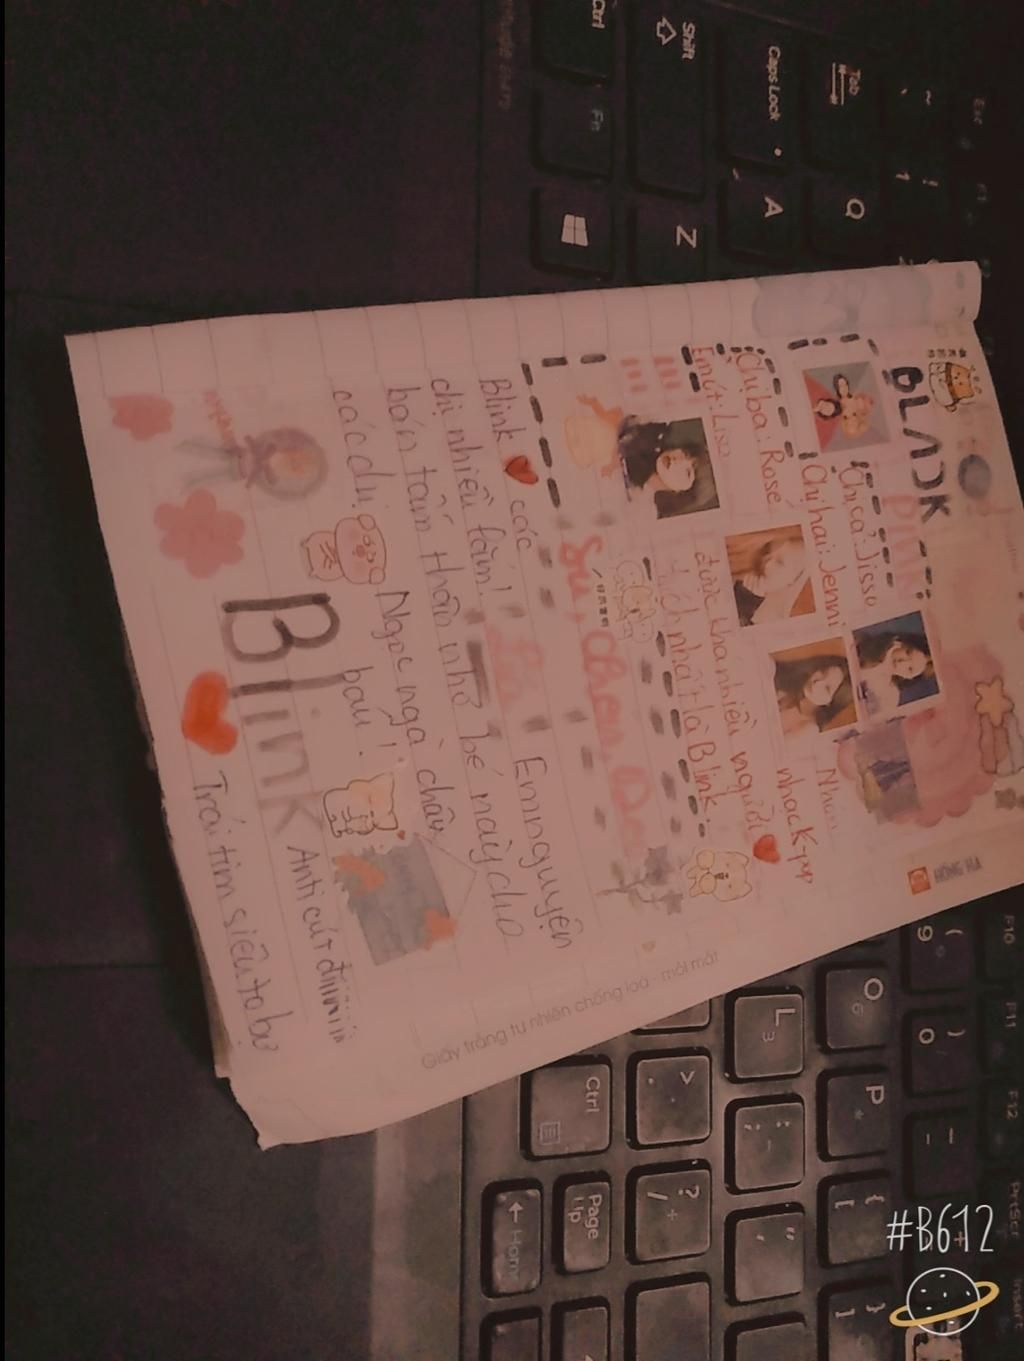 BLACK
PINK
Chị cả: Jisso
Chị hai: Jenni
Chị ba: Rosé
Em út: Lisa
nhạc K-pop
được khá nhiều người
thích nhất là Blink.
Blink ❤ các Em nguyện
chị nhiều lắm!
bán tấm thân nhỏ bé này cho
các chị Ngọc ngà châu
báu!
Blink Anti cút điiiiii
Trái tim siêu to bự
HỒNG HÀ
Giấy trắng tự nhiên chống loá - mỏi mắt
Esc
F1
~
`
!
1
Tab
Q
Caps Lock
A
Shift
Z
Ctrl
Fn
F10
F11
F12
PrtScr
Insert
(
9
)
0
O
6
P
*
{
[
}
]
L
3
:
;
"
'
>
.
?
/
+
Ctrl
Page
Up
Home
#B612